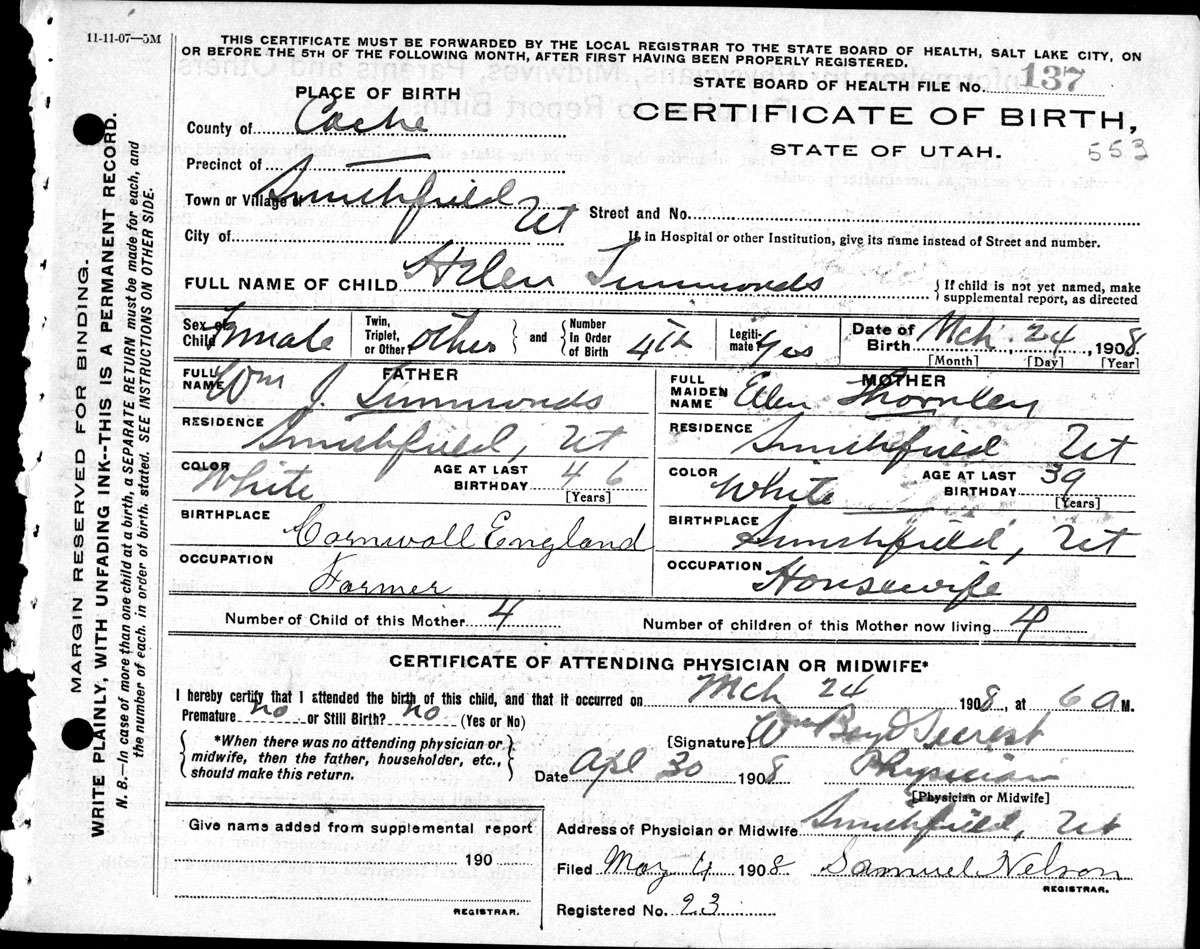 11-11-07—5M
THIS CERTIFICATE MUST BE FORWARDED BY THE LOCAL REGISTRAR TO THE STATE BOARD OF HEALTH, SALT LAKE CITY, ON
OR BEFORE THE 5TH OF THE FOLLOWING MONTH, AFTER FIRST HAVING BEEN PROPERLY REGISTERED.
STATE BOARD OF HEALTH FILE No. 137
CERTIFICATE OF BIRTH,
STATE OF UTAH.
553
PLACE OF BIRTH
County of Cache
Precinct of —
Town or Village of Smithfield Ut
Street and No.
City of
If in Hospital or other Institution, give its name instead of Street and number.
FULL NAME OF CHILD Helen Simmonds
{ If child is not yet named, make
supplemental report, as directed
Sex of Child Female
Twin, Triplet, or Other other } and { Number In Order of Birth 4th
Legitimate? Yes
Date of Birth Mch. 24, 1908.
[Month] [Day] [Year]
FATHER
FULL NAME Wm J. Simmonds
RESIDENCE Smithfield, Ut
COLOR White
AGE AT LAST BIRTHDAY 46
[Years]
BIRTHPLACE Cornwall England
OCCUPATION Farmer
MOTHER
FULL MAIDEN NAME Ellen Thornley
RESIDENCE Smithfield Ut
COLOR White
AGE AT LAST BIRTHDAY 39
[Years]
BIRTHPLACE Smithfield, Ut
OCCUPATION Housewife
Number of Child of this Mother 4
Number of children of this Mother now living 4
CERTIFICATE OF ATTENDING PHYSICIAN OR MIDWIFE*
I hereby certify that I attended the birth of this child, and that it occurred on Mch 24 1908, at 6 A M.
Premature no or Still Birth? no (Yes or No)
{ *When there was no attending physician or
midwife, then the father, householder, etc.,
should make this return. }
[Signature] Wm
Date Apl 30 1908 Physician
[Physician or Midwife]
Give name added from supplemental report
190
REGISTRAR.
Address of Physician or Midwife Smithfield, Ut
Filed May 4 1908 Samuel Nelson
REGISTRAR.
Registered No. 23
MARGIN RESERVED FOR BINDING.
WRITE PLAINLY, WITH UNFADING INK--THIS IS A PERMANENT RECORD.
N. B.—In case of more than one child at a birth, a SEPARATE RETURN must be made for each, and
the number of each, in order of birth, stated. SEE INSTRUCTIONS ON OTHER SIDE.